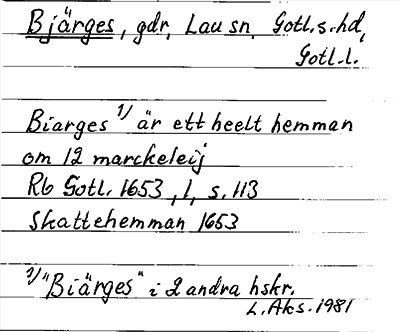 Bjärges, gdr, Lau sn, Gotl.s.hd,
Gotl.l.
Biarges 1/ är ett heelt hemman
om 12 marckeleij
Rb Gotl. 1653, 1, s. 113
Skattehemman 1653
1/ "Biärges" i 2 andra hskr.
L. Aks. 1981